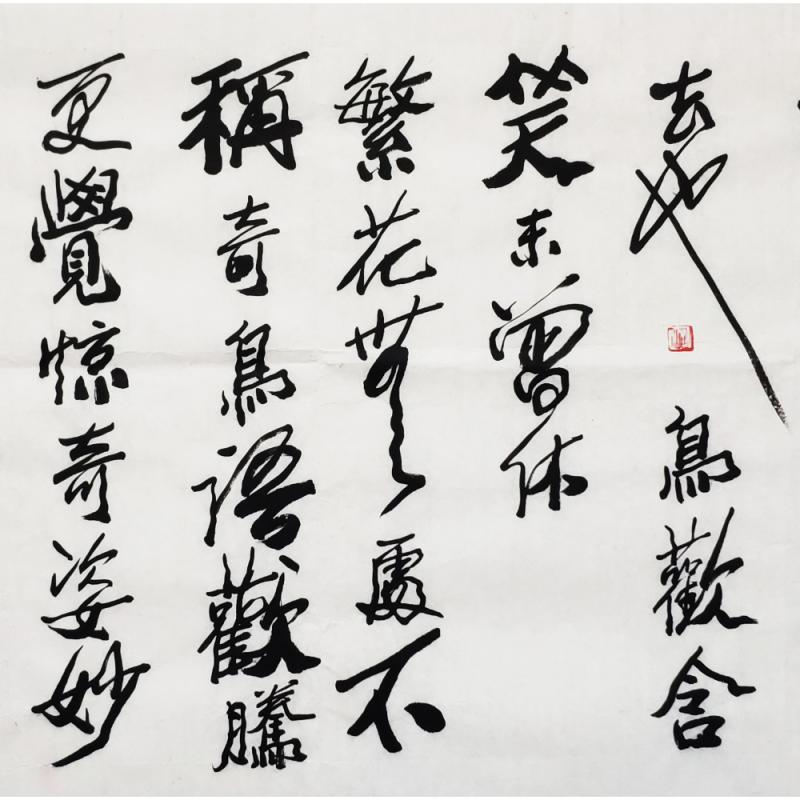 去也
鳥歡含
笑未曾休
繁花無處不
稱奇鳥語歡騰
更覺惊奇姿妙